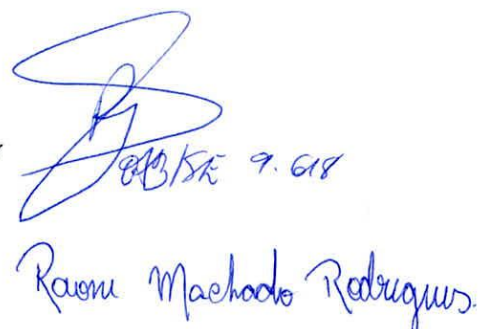 OAB/SE 9.618
Raoni Machado Rodrigues.